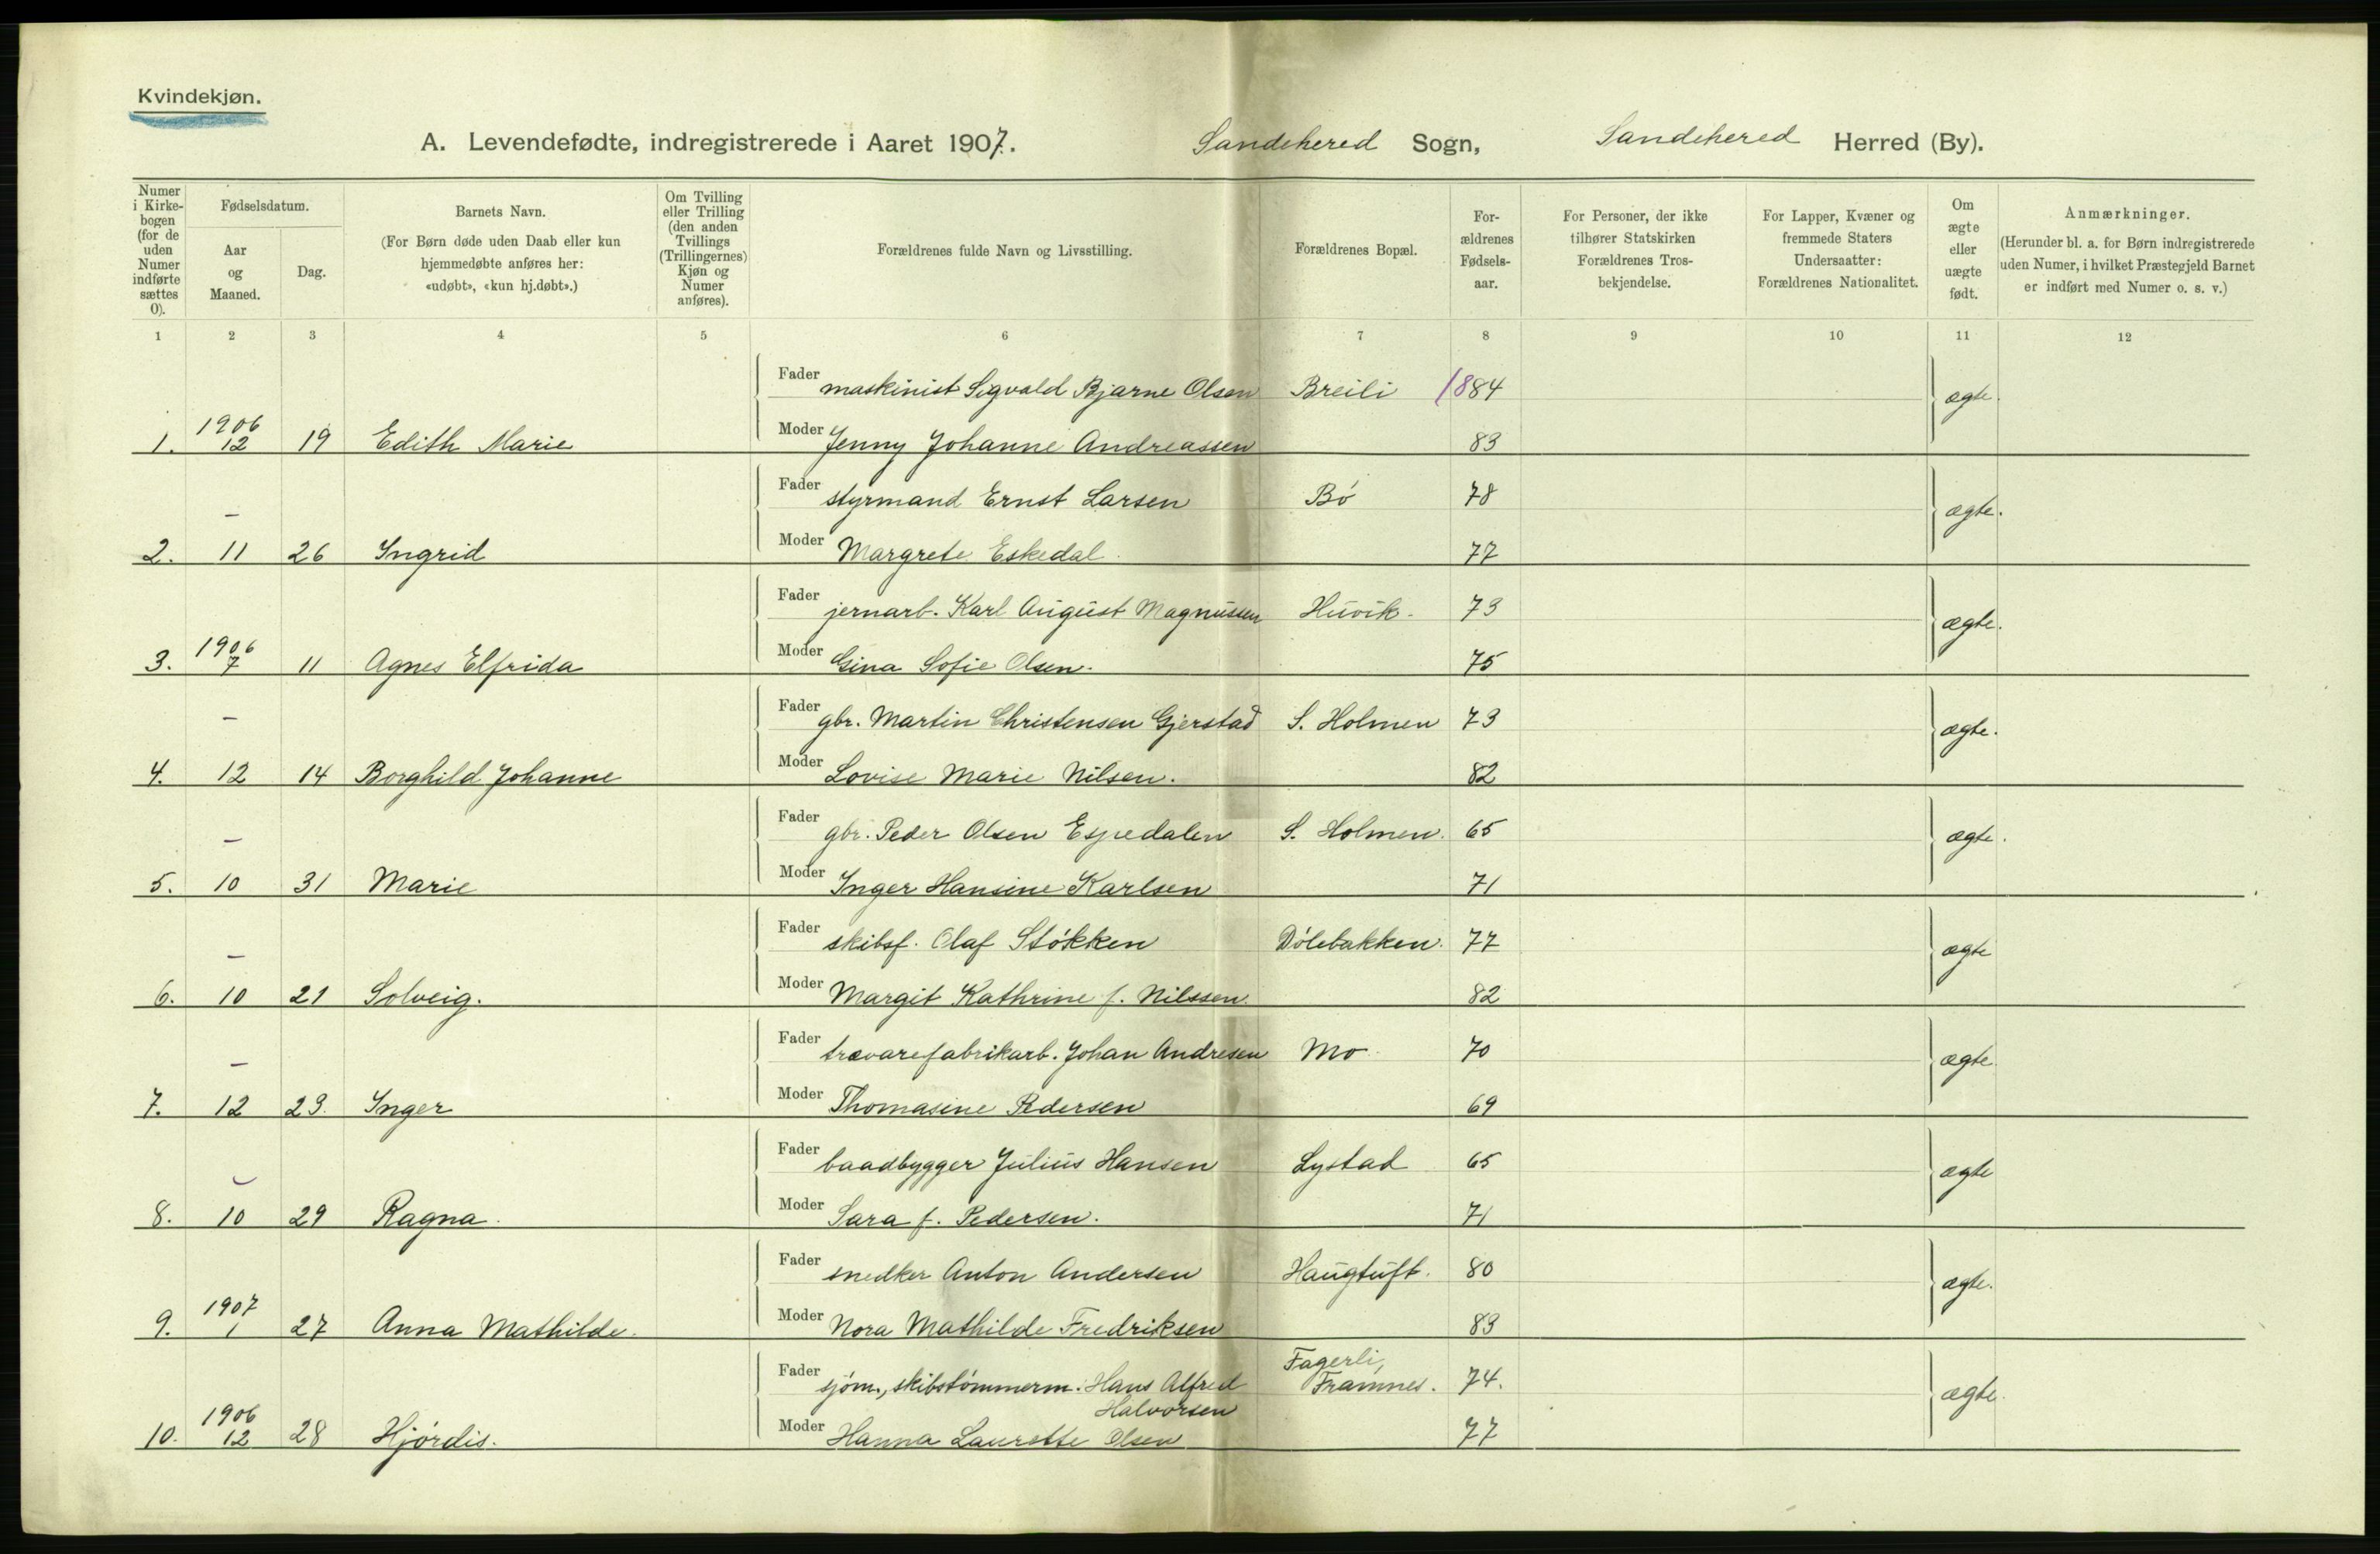 Kvindekjøn.
A. Levendefødte, indregistrerede i Aaret 1907. Sandehered Sogn, Sandehered Herred (By).
Numer i Kirke-bogen (for de uden Numer indførte sættes 0).
Fødselsdatum.
Aar og Maaned.
Dag.
Barnets Navn.
(For Børn døde uden Daab eller kun
hjemmedøbte anføres her:
«udøbt», «kun hj.døbt».)
Om Tvilling
eller Trilling
(den anden
Tvillings
(Trillingernes)
Kjøn og
Numer
anføres).
Forældrenes fulde Navn og Livsstilling.
Forældrenes Bopæl.
For-
ældrenes
Fødsels-
aar.
For Personer, der ikke
tilhører Statskirken
Forældrenes Tros-
bekjendelse.
For Lapper, Kvæner og
fremmede Staters
Undersaatter:
Forældrenes Nationalitet.
Om
ægte
eller
uægte
født.
Anmærkninger.
(Herunder bl. a. for Børn indregistrerede
uden Numer, i hvilket Præstegjeld Barnet
er indført med Numer o. s. v.)
1 2 3 4 5 6 7 8 9 10 11 12
Fader maskinist Sigvald Bjarne Olsen Breili 1884 ægte
1. 1906 12 19 Edith Marie Moder Jenny Johanne Andreassen 83
Fader styrmand Ernst Larsen Bö 78 ægte.
2. – 11 26 Ingrid Moder Margrete Eskedal. 77
Fader jernarb. Karl August Magnussen Huvik. 73 ægte.
3. 1906 7 11 Agnes Elfrida Moder Gina Sofie Olsen. 75
Fader gbr. Martin Christensen Gjerstad S. Holmen 73 ægte.
4. – 12 14 Borghild Johanne Moder Lovise Marie Nilsen. 82
Fader gbr. Peder Olsen Espedalen S. Holmen. 65 ægte.
5. – 10 31 Marie Moder Inger Hansine Karlsen 71
Fader skibsf. Olaf Stökken Dölebakken. 77 ægte
6. – 10 21 Solveig. Moder Margit Kathrine f. Nilssen. 82
Fader trævarefabrikarb. Johan Andresen Mo 70 ægte
7. – 12 23. Inger Moder Thomasine Pedersen 69
Fader baadbygger Julius Hansen Lystad 65 ægte
8. – 10 29 Ragna. Moder Sara f. Pedersen. 71
Fader snedker Anton Andersen Haugtuft. 80 ægte.
9. 1907 1 27 Anna Mathilde. Moder Nora Mathilde Fredriksen 83
Fader sjöm., skibstömmerm. Hans Alfred Halvorsen Fagerli, Framnes. 74. ægte.
10. 1906 12 28 Hjördis. Moder Hanna Laurette Olsen 77